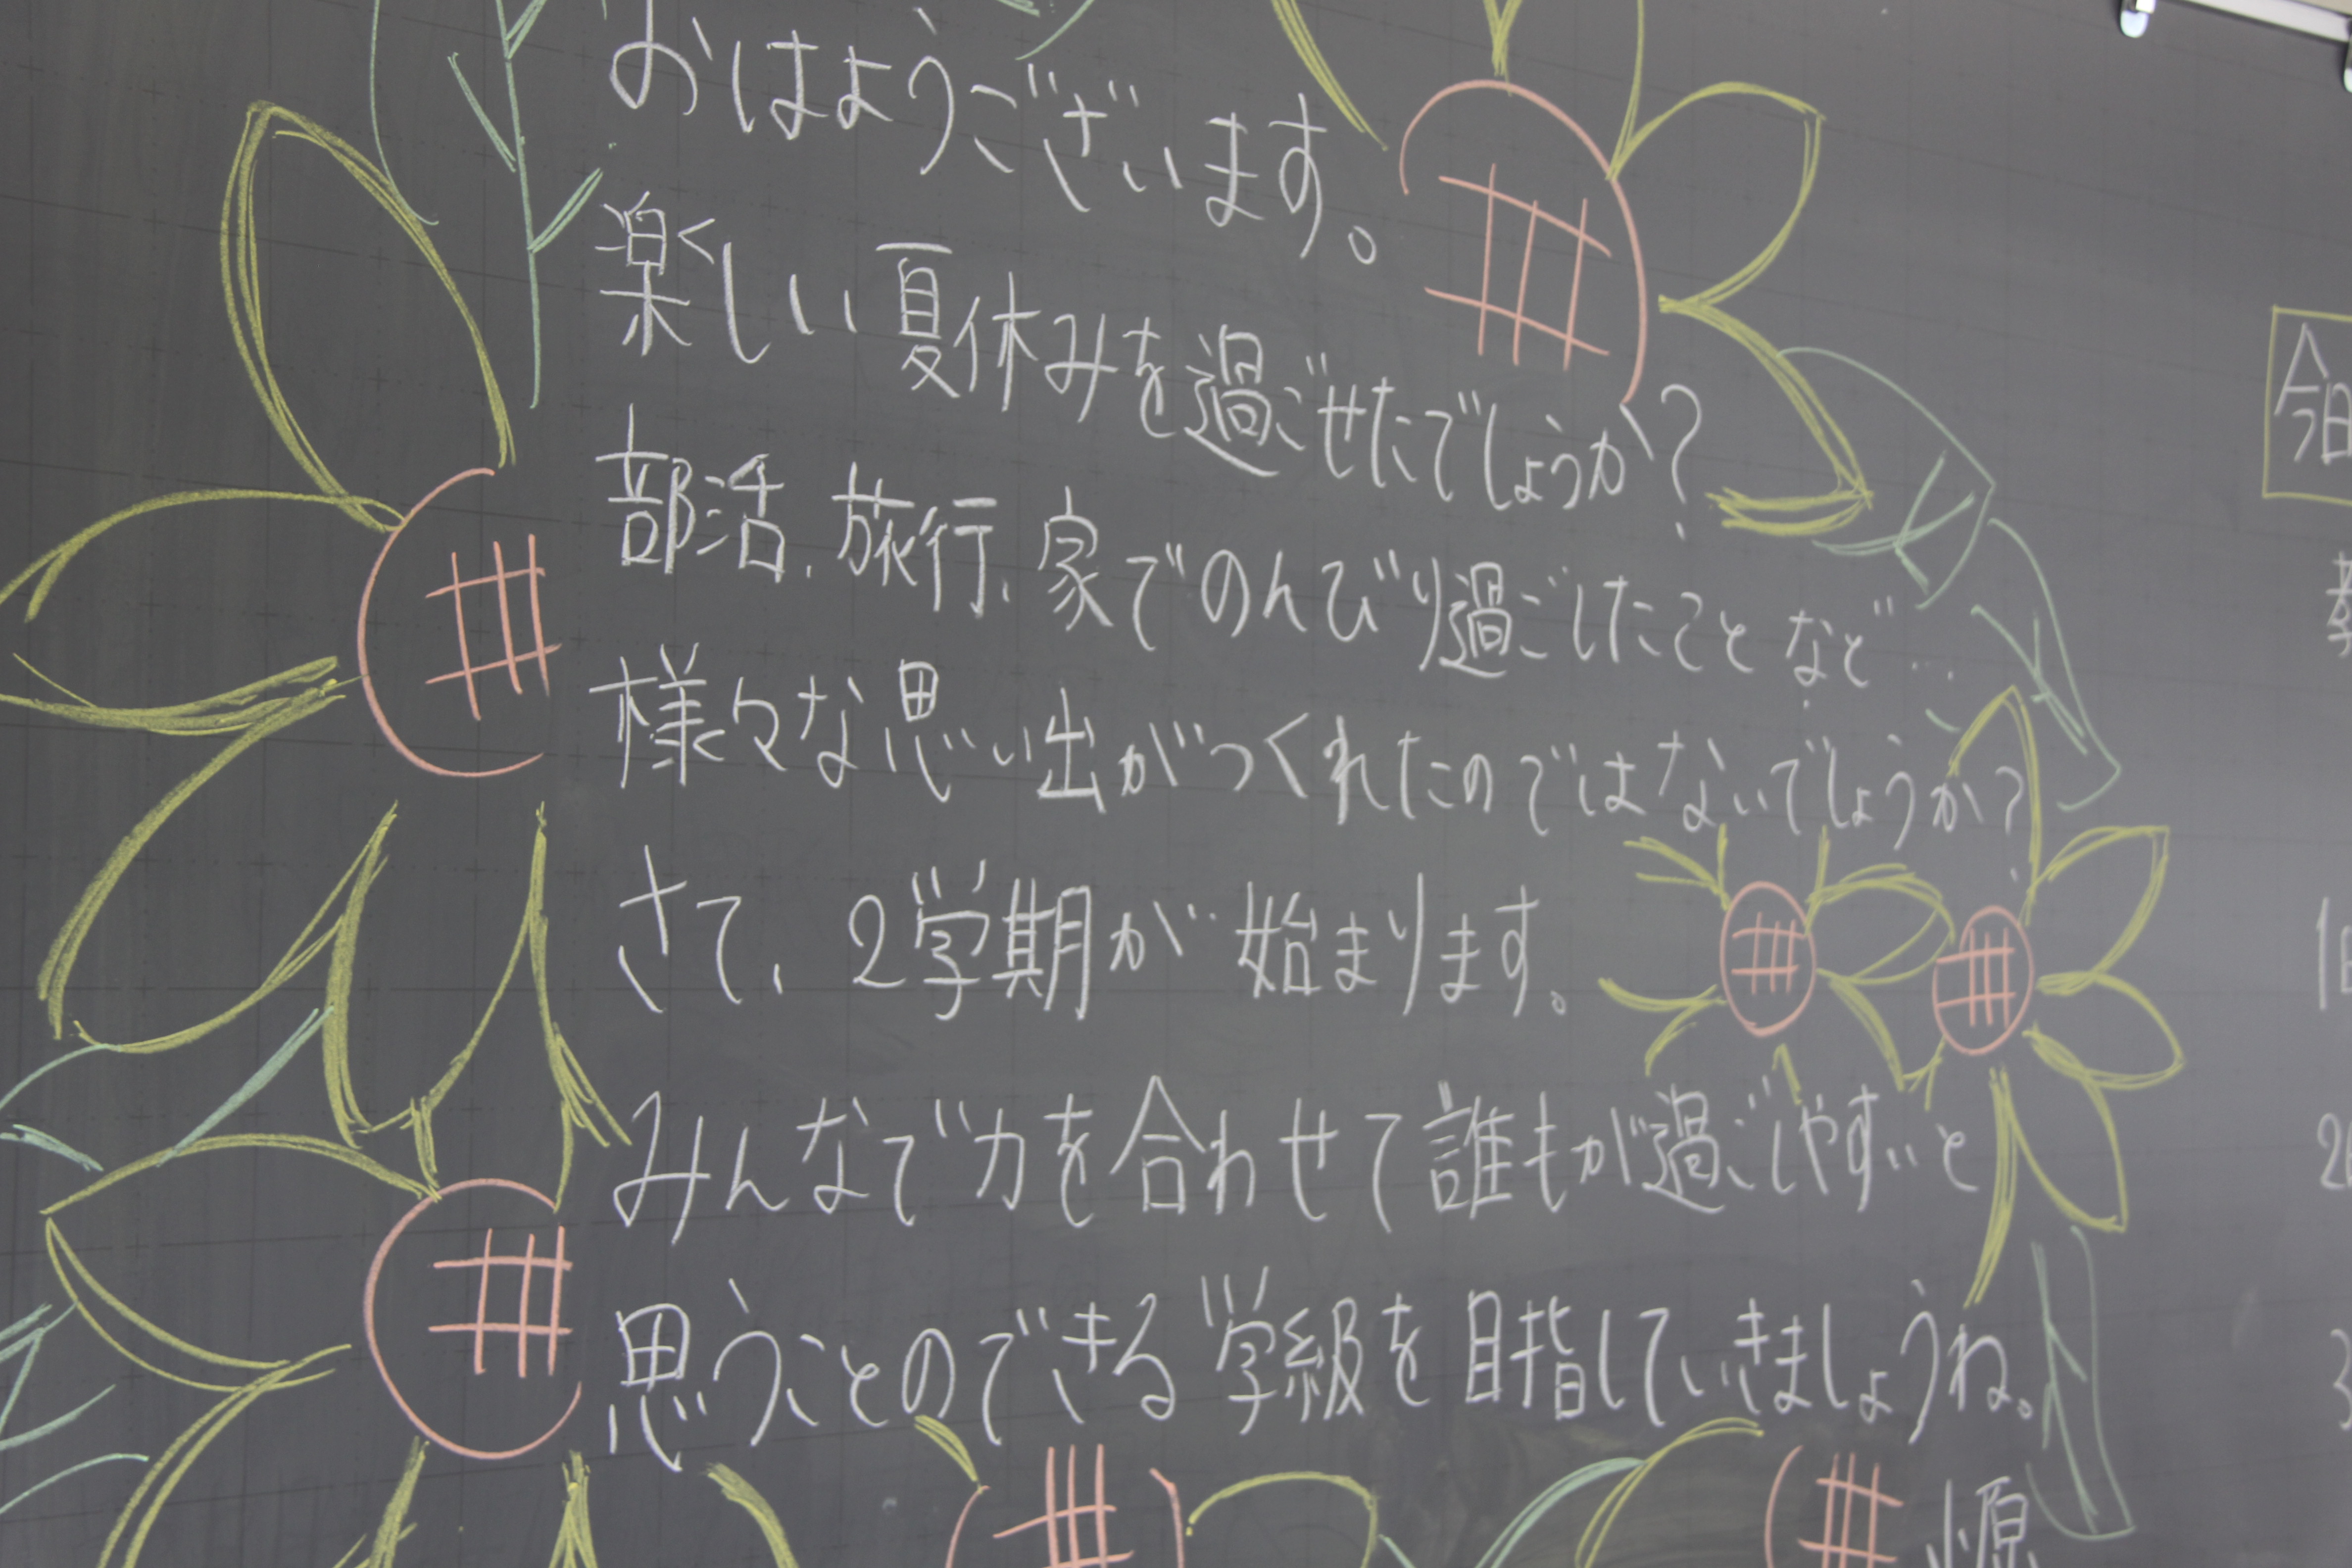 おはようございます。
楽しい夏休みを過ごせたでしょうか?
部活、旅行、家でのんびり過ごしたことなど…
様々な思い出がつくれたのではないでしょうか?
さて、2学期が始まります。
みんなで力を合わせて誰もが過ごしやすいと
思うことのできる学級を目指していきましょうね。
今日